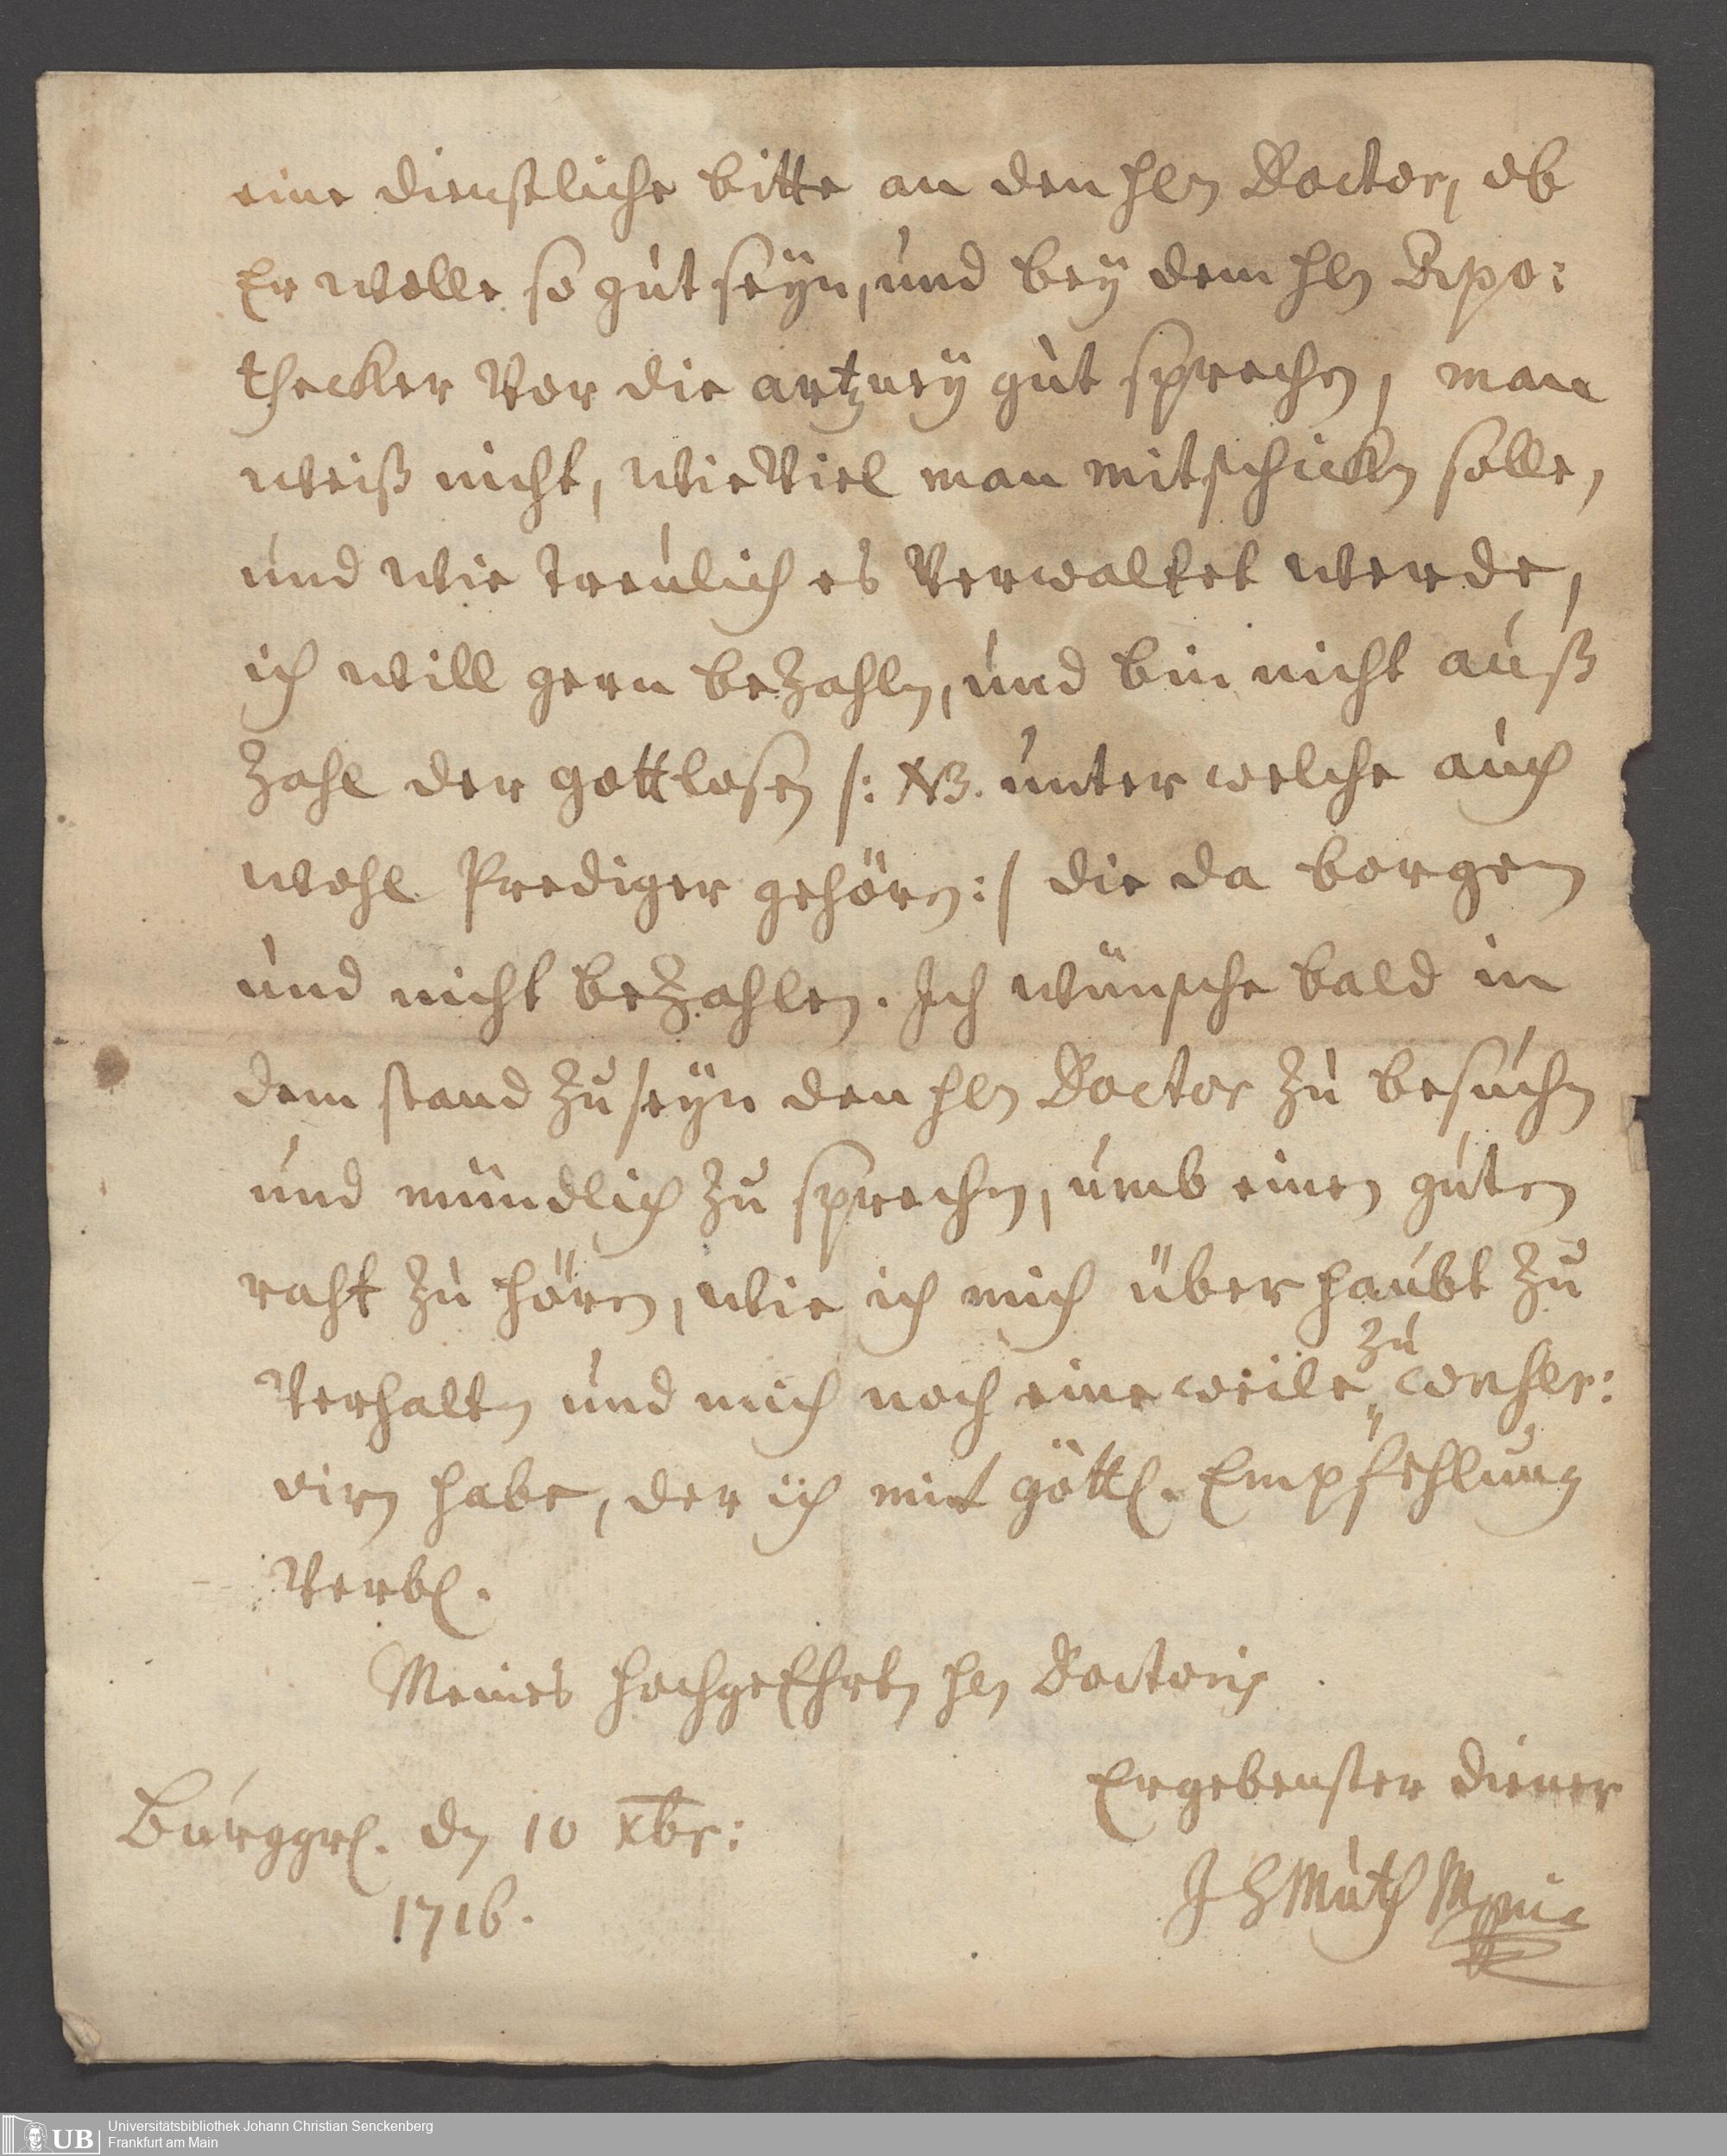 eine dienstliche bitte an den hln Doctor, ob
Er wolle so gut seÿn, und beÿ dem hln Apo:
thecker vor die artzneÿ gut sprechn, man
weiß nicht, wie viel man mitschickn solle,
und wie treulich es verwaltet werde,
ich will gern bezahln, und bin nicht auß
Zahl der gottlosen /: NB. unter welche auch
wohl Prediger gehörn :/ die da borgen
und nicht bezahlen. Ich wünsche bald in
dem stand zu seÿn den hln Doctor zu besuchn
und mündlich zu sprechn, umb einen guten
raht zu hörn, wie ich mich überhaubt zu
verhaltn und mich noch eine weile zu conser:
virn habe, der ich mit göttl. Empfehlung
verbl.
Meines hochgeEhrtn hln Doctoris
Ergebenster diener
Burggrl. dn 10 Xbr:
1716.
J H Muth
Universitätsbibliothek Johann Christian Senckenberg
Frankfurt am Main
UB